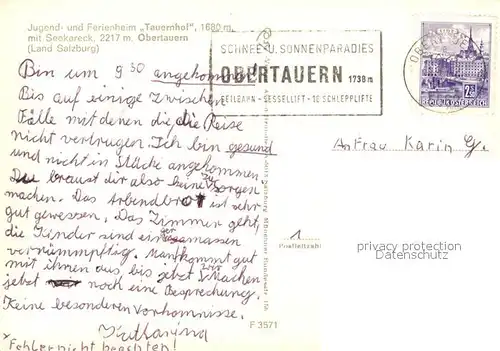 Jugend- und Ferienheim „Tauernhof", 1680 m,
mit Seekareck, 2217 m, Obertauern
(Land Salzburg)
SCHNEE-U. SONNENPARADIES
OBERTAUERN 1738m
SEILBAHN - SESSELLIFT - 10 SCHLEPPLIFTE
REPUBLIK ÖSTERREICH
Bin um 9 30 angekommen
Bis auf einige zwischen
Fälle mit denen die die Reise
nicht vertrugen. Ich bin gesund
und nicht in Stücke angekommen.
Du braust dir also keine Sorgen zu
machen. Das Abendbrot ist sehr
gut gewessen. Das Zimmer geht,
die Kinder sind einigermassen
vernümpftig. Man kommt gut
mit ihnen aus, bis jetzt. Wir machen
jetzt noch eine Besprechung.
Keine besonderen Vorkomnisse.
Katharina
*Fehler nicht beachten!
An Frau Karin G.
1
Postleitzahl
privacy protection
Datenschutz
F 3571